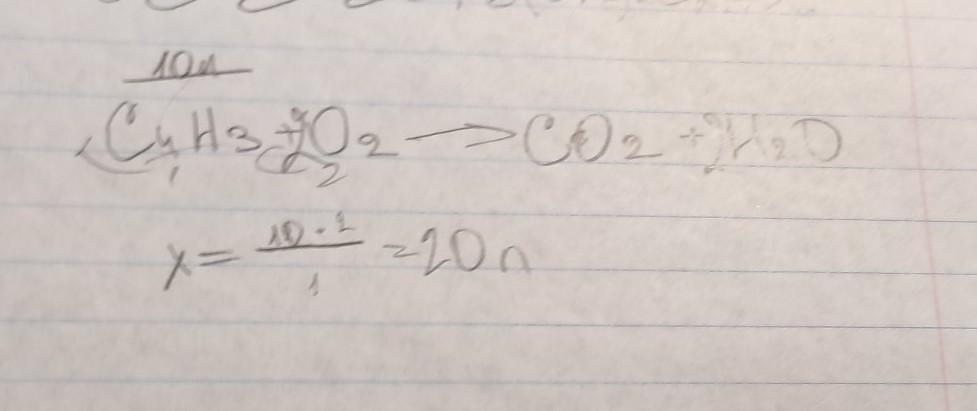 10л
C4H3 + O2 → CO2 + H2O
1 2
x = 10 · 2 / 1 = 20 л